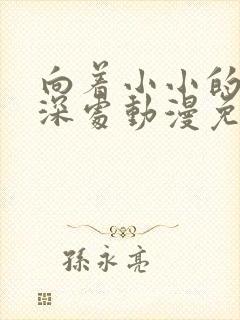 向着小小的
深处動漫免
孫永亮